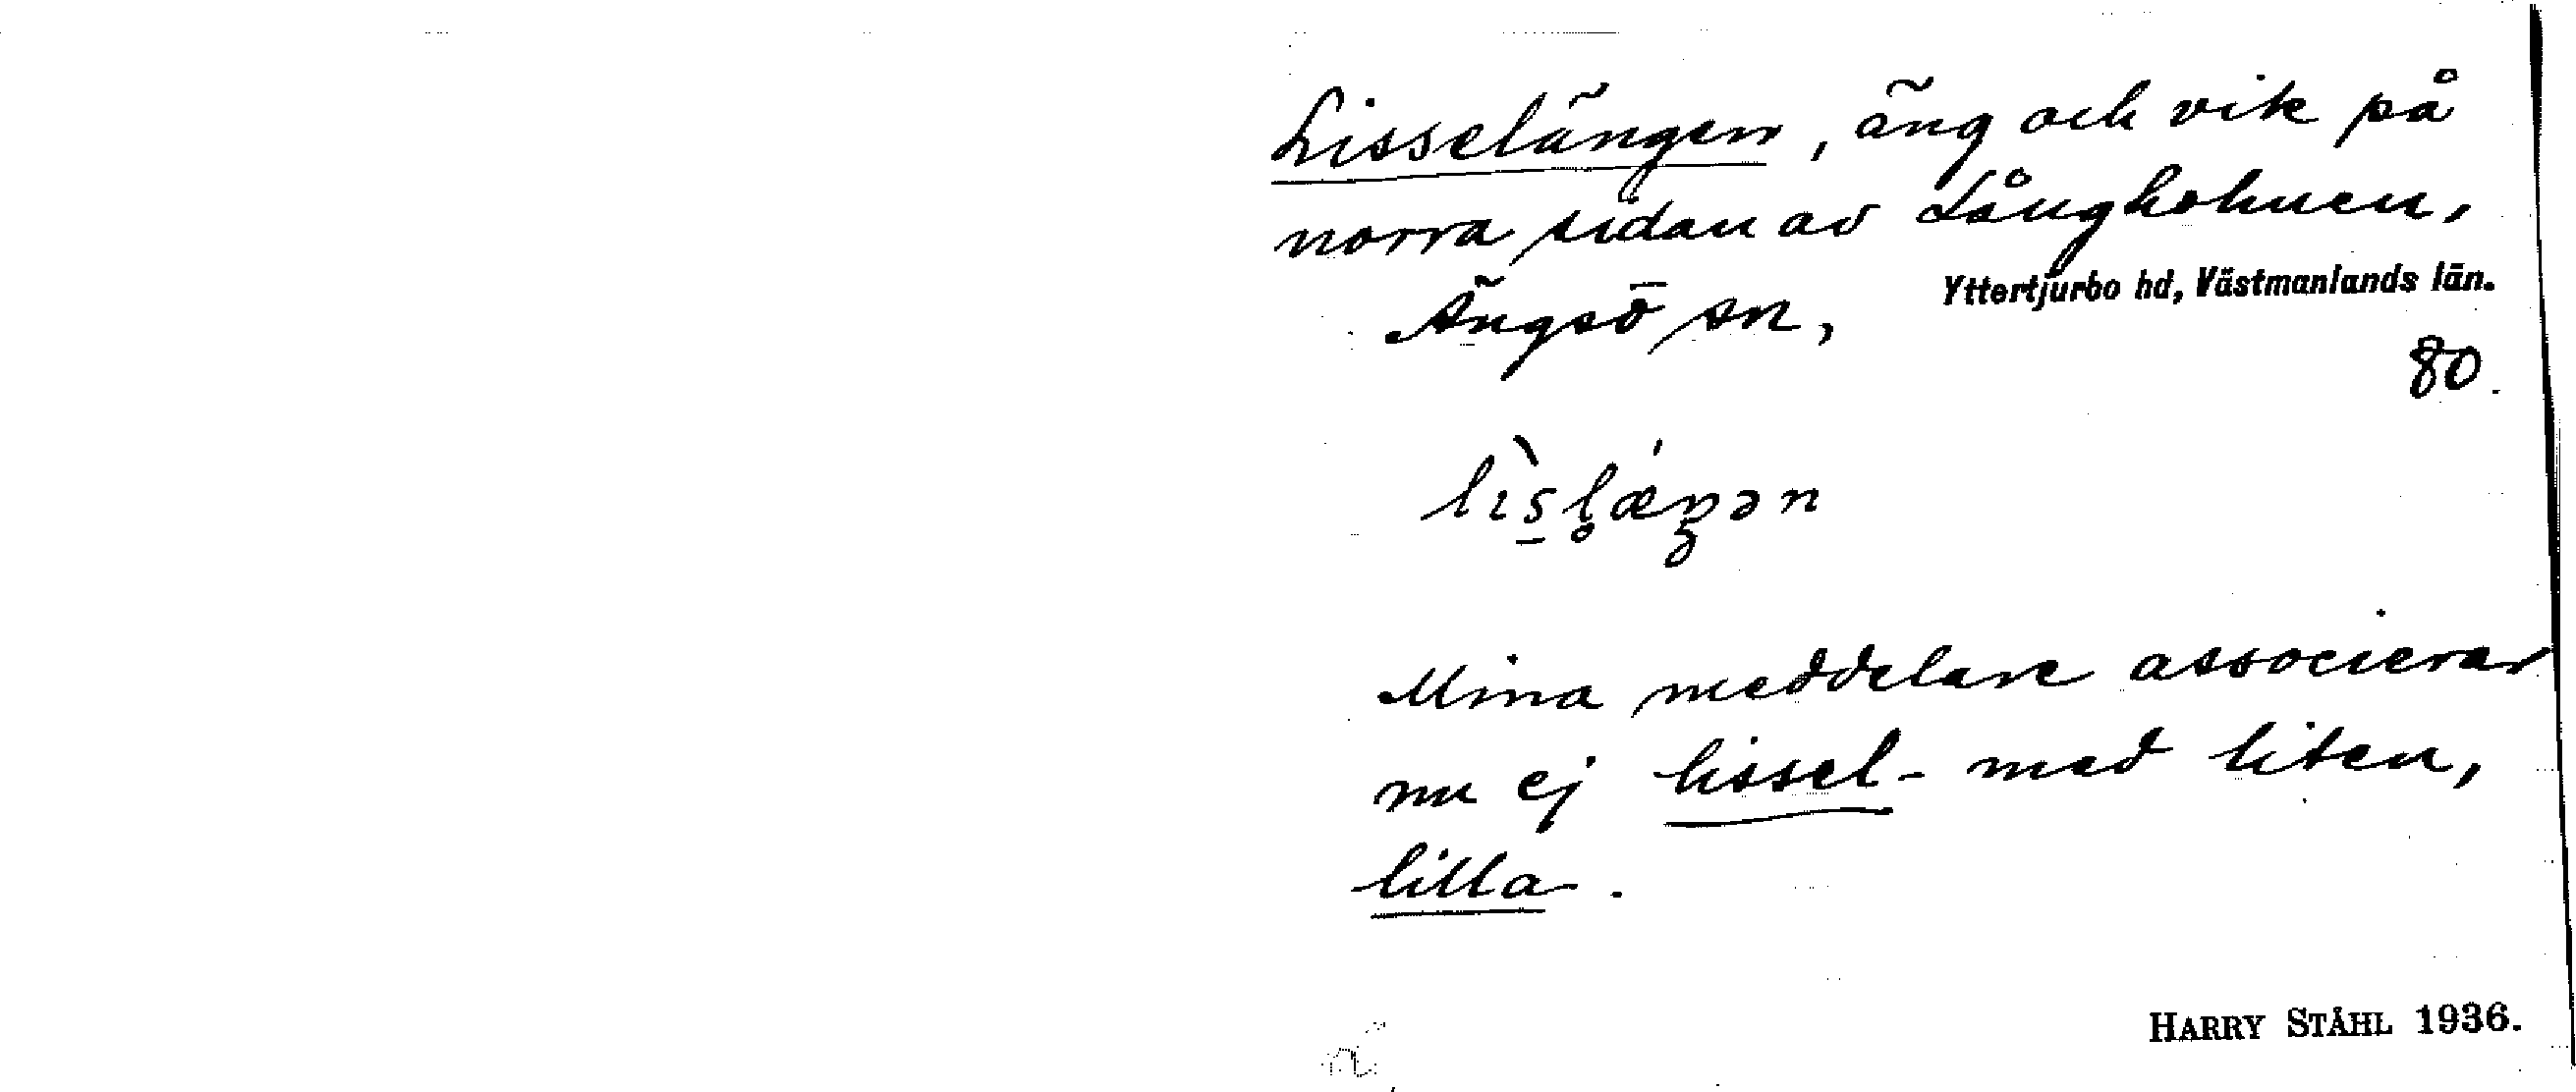 Lisselängen, äng och vik på
norra sidan av Långholmen,
Ängsö sn, Yttertjurbo hd, Västmanlands län.
80.
Mina meddelare associerar
nu ej lissel- med liten,
lilla.
HARRY STÅHL 1936.